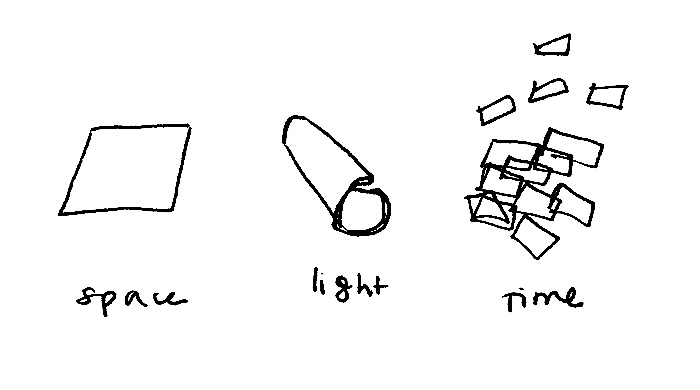 space
light
time